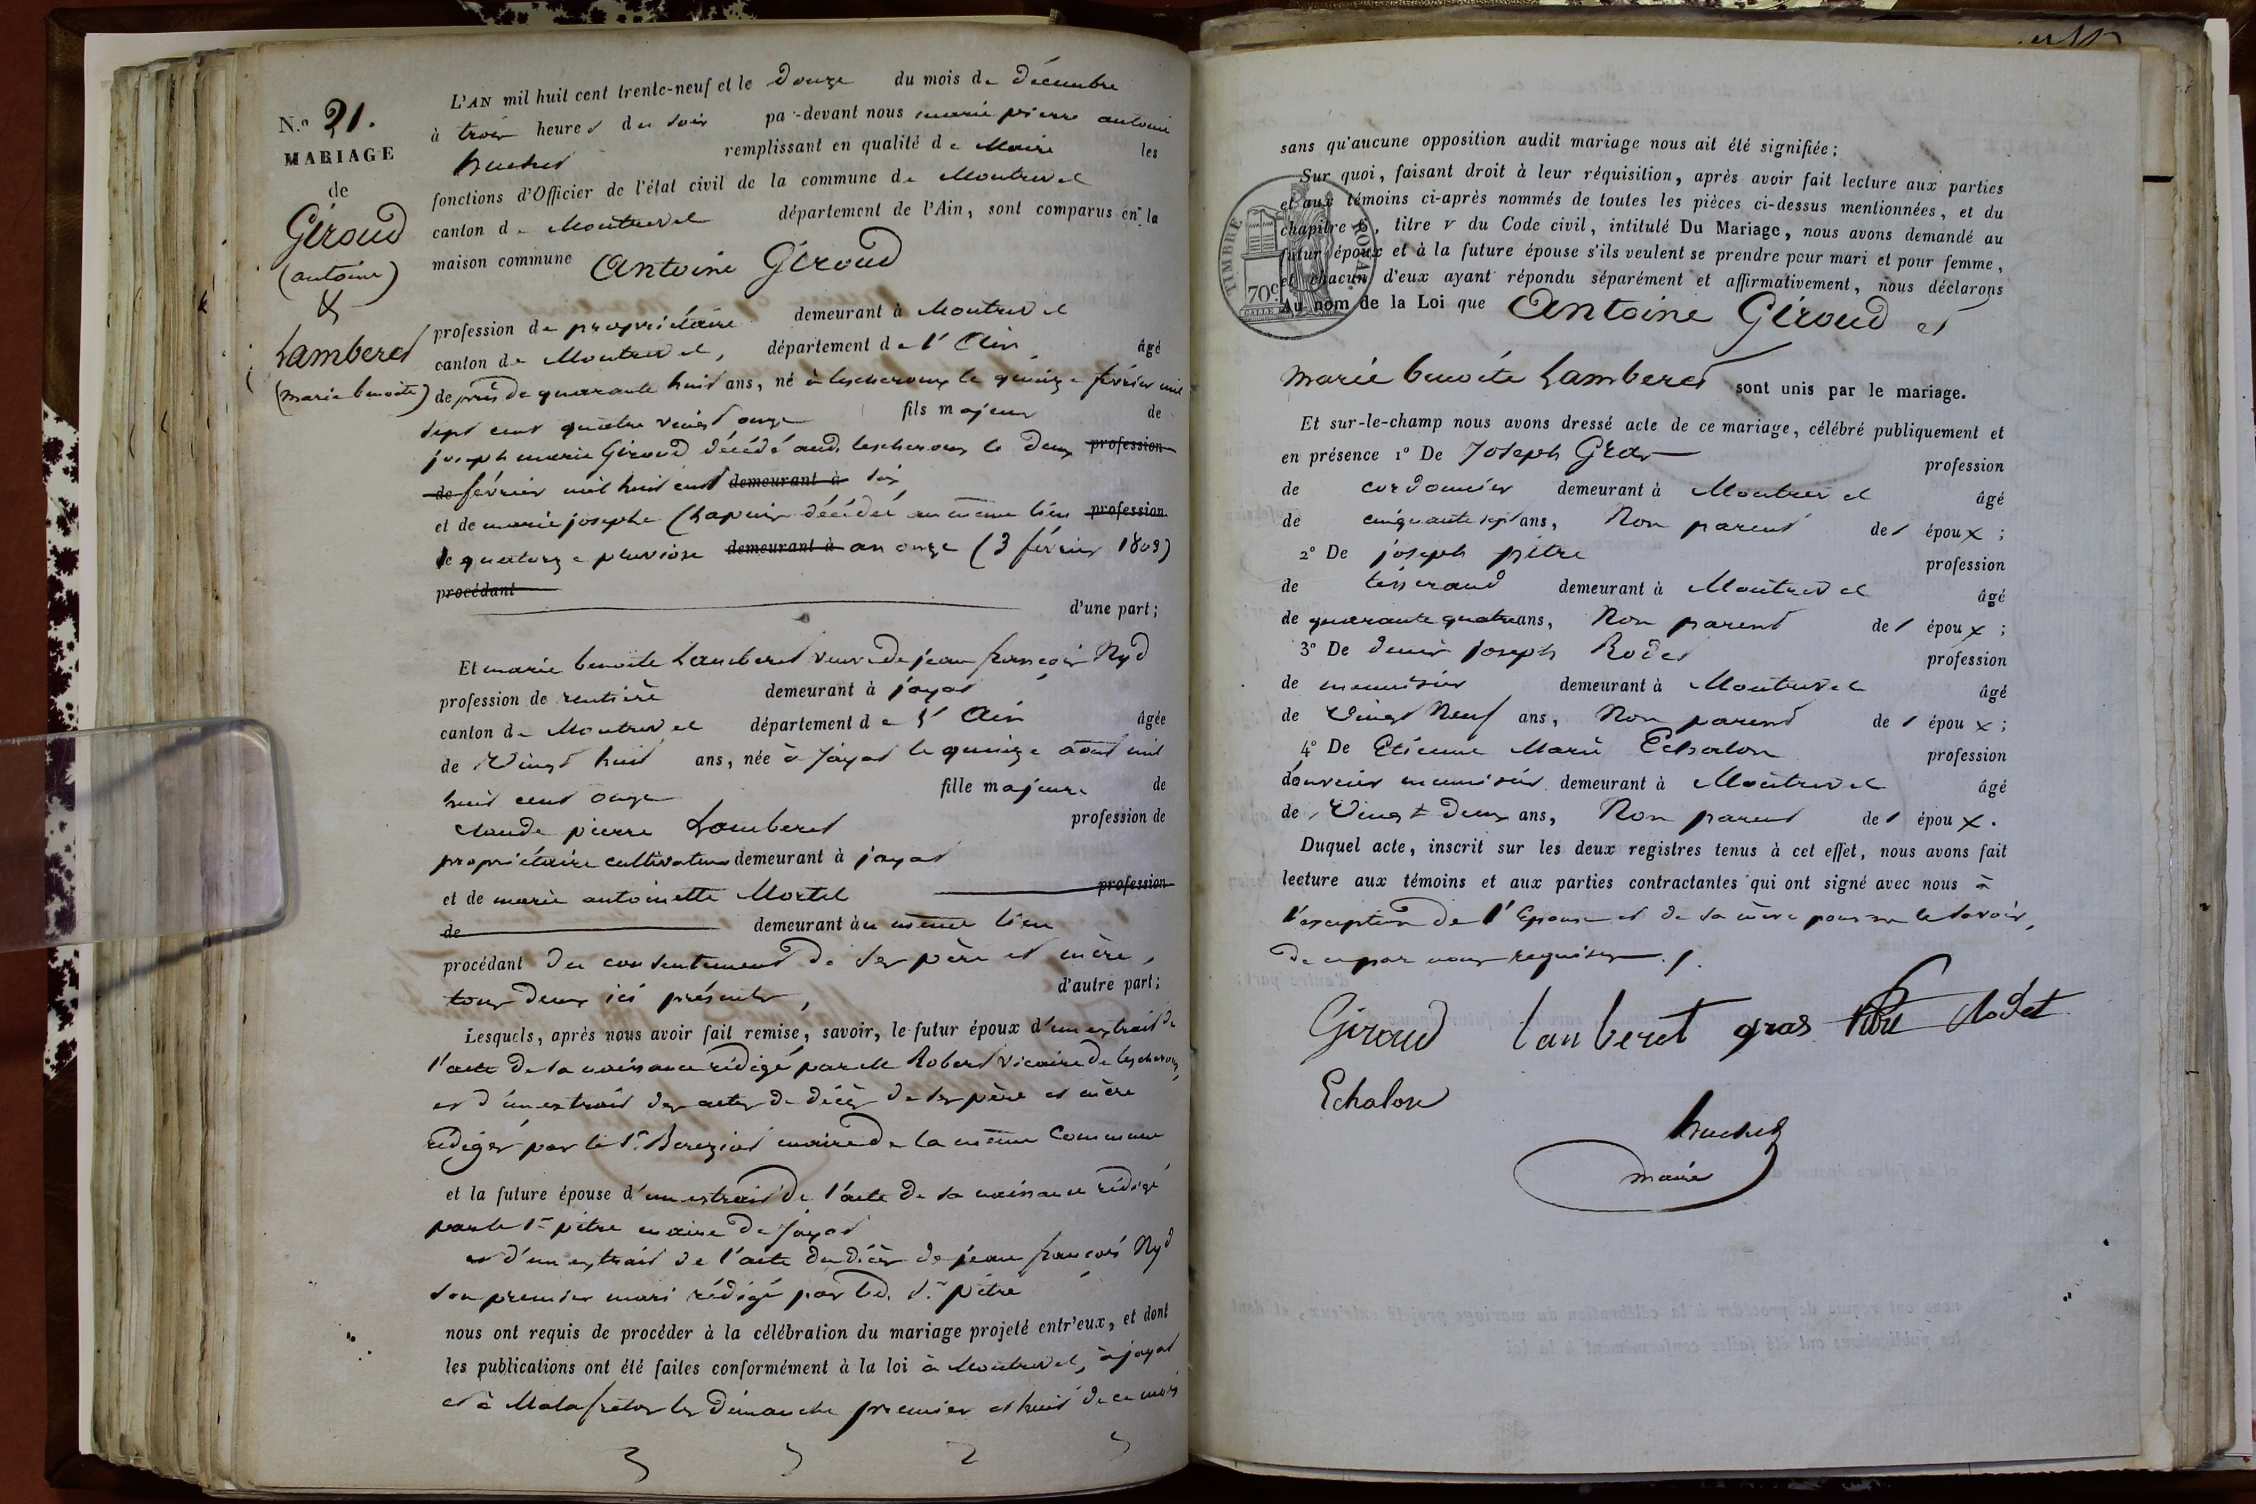 N.o 21.
MARIAGE
de
Géroud
(antoine)
&
Lamberet
(marie benoite)
L'AN mil huit cent trente-neuf et le douze du mois de décembre
à trois heures du soir par-devant nous marie pierre antoine
huchet remplissant en qualité de Maire les
fonctions d'Officier de l'état civil de la commune de Montrevel
canton de Montrevel département de l'Ain, sont comparus en la
maison commune Antoine Géroud
profession de propriétaire demeurant à Montrevel
canton de Montrevel, département de l'Ain, âgé
de près de quarante huit ans, né à lescheroux le quinze février mil
sept cent quatre vingt onze fils majeur de
joseph marie Giroud décédé aud. lescheroux le deux profession
de février mil huit cent demeurant à six
et de marie josephe Chapuis décédée au même lieu profession
le quatorze pluviose demeurant à an onze (3 février 1803)
procédant
d'une part;
Et marie benoite Lamberet veuve de jean françois Nyd
profession de rentière demeurant à jayat
canton de Montrevel département de l'Ain âgée
de Vingt huit ans, née à Jayat le quinze aout mil
huit cent onze fille majeure de
claude pierre Lamberet profession de
propriétaire cultivateur demeurant à jayat
et de marie antoinette Mortel profession
de demeurant au même lieu
procédant du consentement de ses père et mère,
tous deux ici présents, d'autre part;
Lesquels, après nous avoir fait remise, savoir, le futur époux d'un extrait de
l'acte de sa naissance rédigé par Me Robert Vicaire de lescheroux,
et d'un extrait des actes de décès de ses père et mère
rédigés par le Sr. Bereziat maire de la même Commune
et la future épouse d'un extrait de l'acte de sa naissance rédigé
par le Sr pitre maire de Jayat
et d'un extrait de l'acte du décès de jean françois Nyd
son premier mari rédigé par led. Sr pitre
nous ont requis de procéder à la célébration du mariage projeté entr'eux, et dont
les publications ont été faites conformément à la loi à Montrevel, à jayat
et à Malafretaz les dimanche premier et huit de ce mois
sans qu'aucune opposition audit mariage nous ait été signifiée;
Sur quoi, faisant droit à leur réquisition, après avoir fait lecture aux parties
et aux témoins ci-après nommés de toutes les pièces ci-dessus mentionnées, et du
chapitre 6, titre v du Code civil, intitulé Du Mariage, nous avons demandé au
futur époux et à la future épouse s'ils veulent se prendre pour mari et pour femme,
et chacun d'eux ayant répondu séparément et affirmativement, nous déclarons
Au nom de la Loi que Antoine Géroud et
TIMBRE ROYAL
70c
marie benoite Lamberet sont unis par le mariage.
Et sur-le-champ nous avons dressé acte de ce mariage, célébré publiquement et
en présence 1o De Joseph Gras profession
de cordonnier demeurant à Montrevel âgé
de cinquante sept ans, Non parent de l'époux;
2o De joseph pitre profession
de tisserand demeurant à Montrevel âgé
de quarante quatre ans, Non parent de l'époux;
3o De denis joseph Rodet profession
de menuisier demeurant à Montrevel âgé
de Vingt Neuf ans, Non parent de l'époux;
4o De Etienne Marie Echalon profession
d'ouvrier menuisier demeurant à Montrevel âgé
de Vingt deux ans, Non parent de l'époux.
Duquel acte, inscrit sur les deux registres tenus à cet effet, nous avons fait
lecture aux témoins et aux parties contractantes qui ont signé avec nous à
l'exception de l'Epouse et de sa mère pour ne le savoir,
de ce par nous requises ./.
Giroud lanberet gras Pitre Rodet
Echalon
huchet
maire